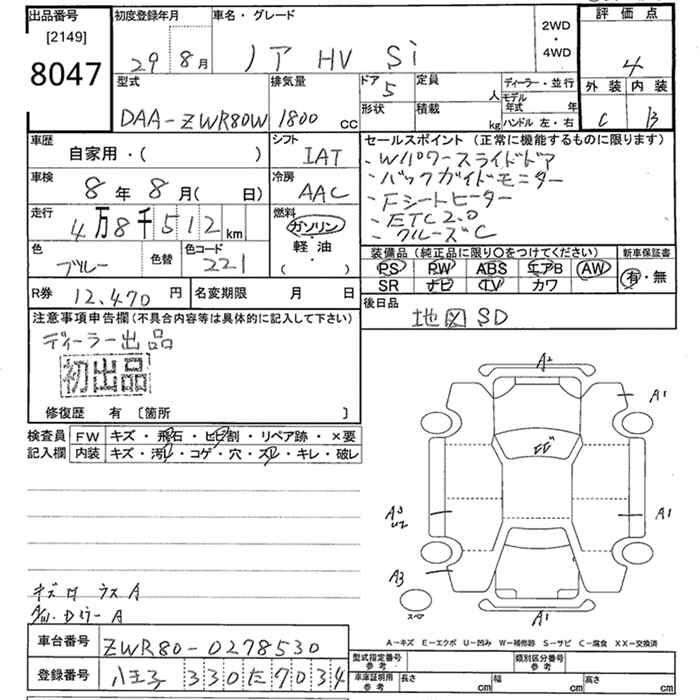 出品番号
[2149]
8047
初度登録年月
29 8月
車名・グレード
ノア HV Si
2WD
・
4WD
評価点
4
外装 内装
C B
型式
DAA-ZWR80W
排気量
1800 cc
ドア 5
形状
定員 人
積載 kg
ディーラー・並行
モデル年式 年
ハンドル 左・右
車歴
自家用・( )
シフト
IAT
車検
8年 8月( 日)
冷房
AAC
走行
4万8千512 km
燃料
ガソリン
・
軽油
・
( )
色
ブルー
色替
色コード
221
R券 12,470 円
名変期限 月 日
セールスポイント (正常に機能するものに限ります)
・Wパワースライドドア
・バックガイドモニター
・Fシートヒーター
・ETC2.0
・クルーズC
装備品 (純正品に限り○をつけてください)
新車保証書
PS PW ABS エアB AW
SR ナビ TV カワ
有・無
後日品
地図 SD
注意事項申告欄(不具合内容等は具体的に記入して下さい)
ディーラー出品
初出品
修復歴 有 〔箇所 〕
検査員
記入欄
FW キズ・飛石・ヒビ割・リペア跡・×要
内装 キズ・汚レ・コゲ・穴・スレ・キレ・破レ
A2
A1
A1
A3
A1
スペア
A-キズ E-エクボ U-凹み W-補修跡 S-サビ C-腐食 XX-交換済
車台番号 ZWR80-0278530
登録番号 八王子 330 た 7034
型式指定番号
参考
類別区分番号
参考
車庫証明用
参考
長さ cm
幅 cm
高さ cm